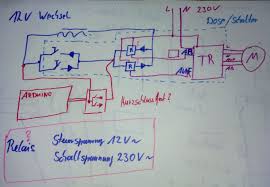 12V Wechsel
L N 230V
Dose/Schalter
R
R
AB
AUF
TR
M
ARDUINO
Kurzschluss Gnd?
Relais ?
Steuerspannung 12V~
Schaltspannung 230V~